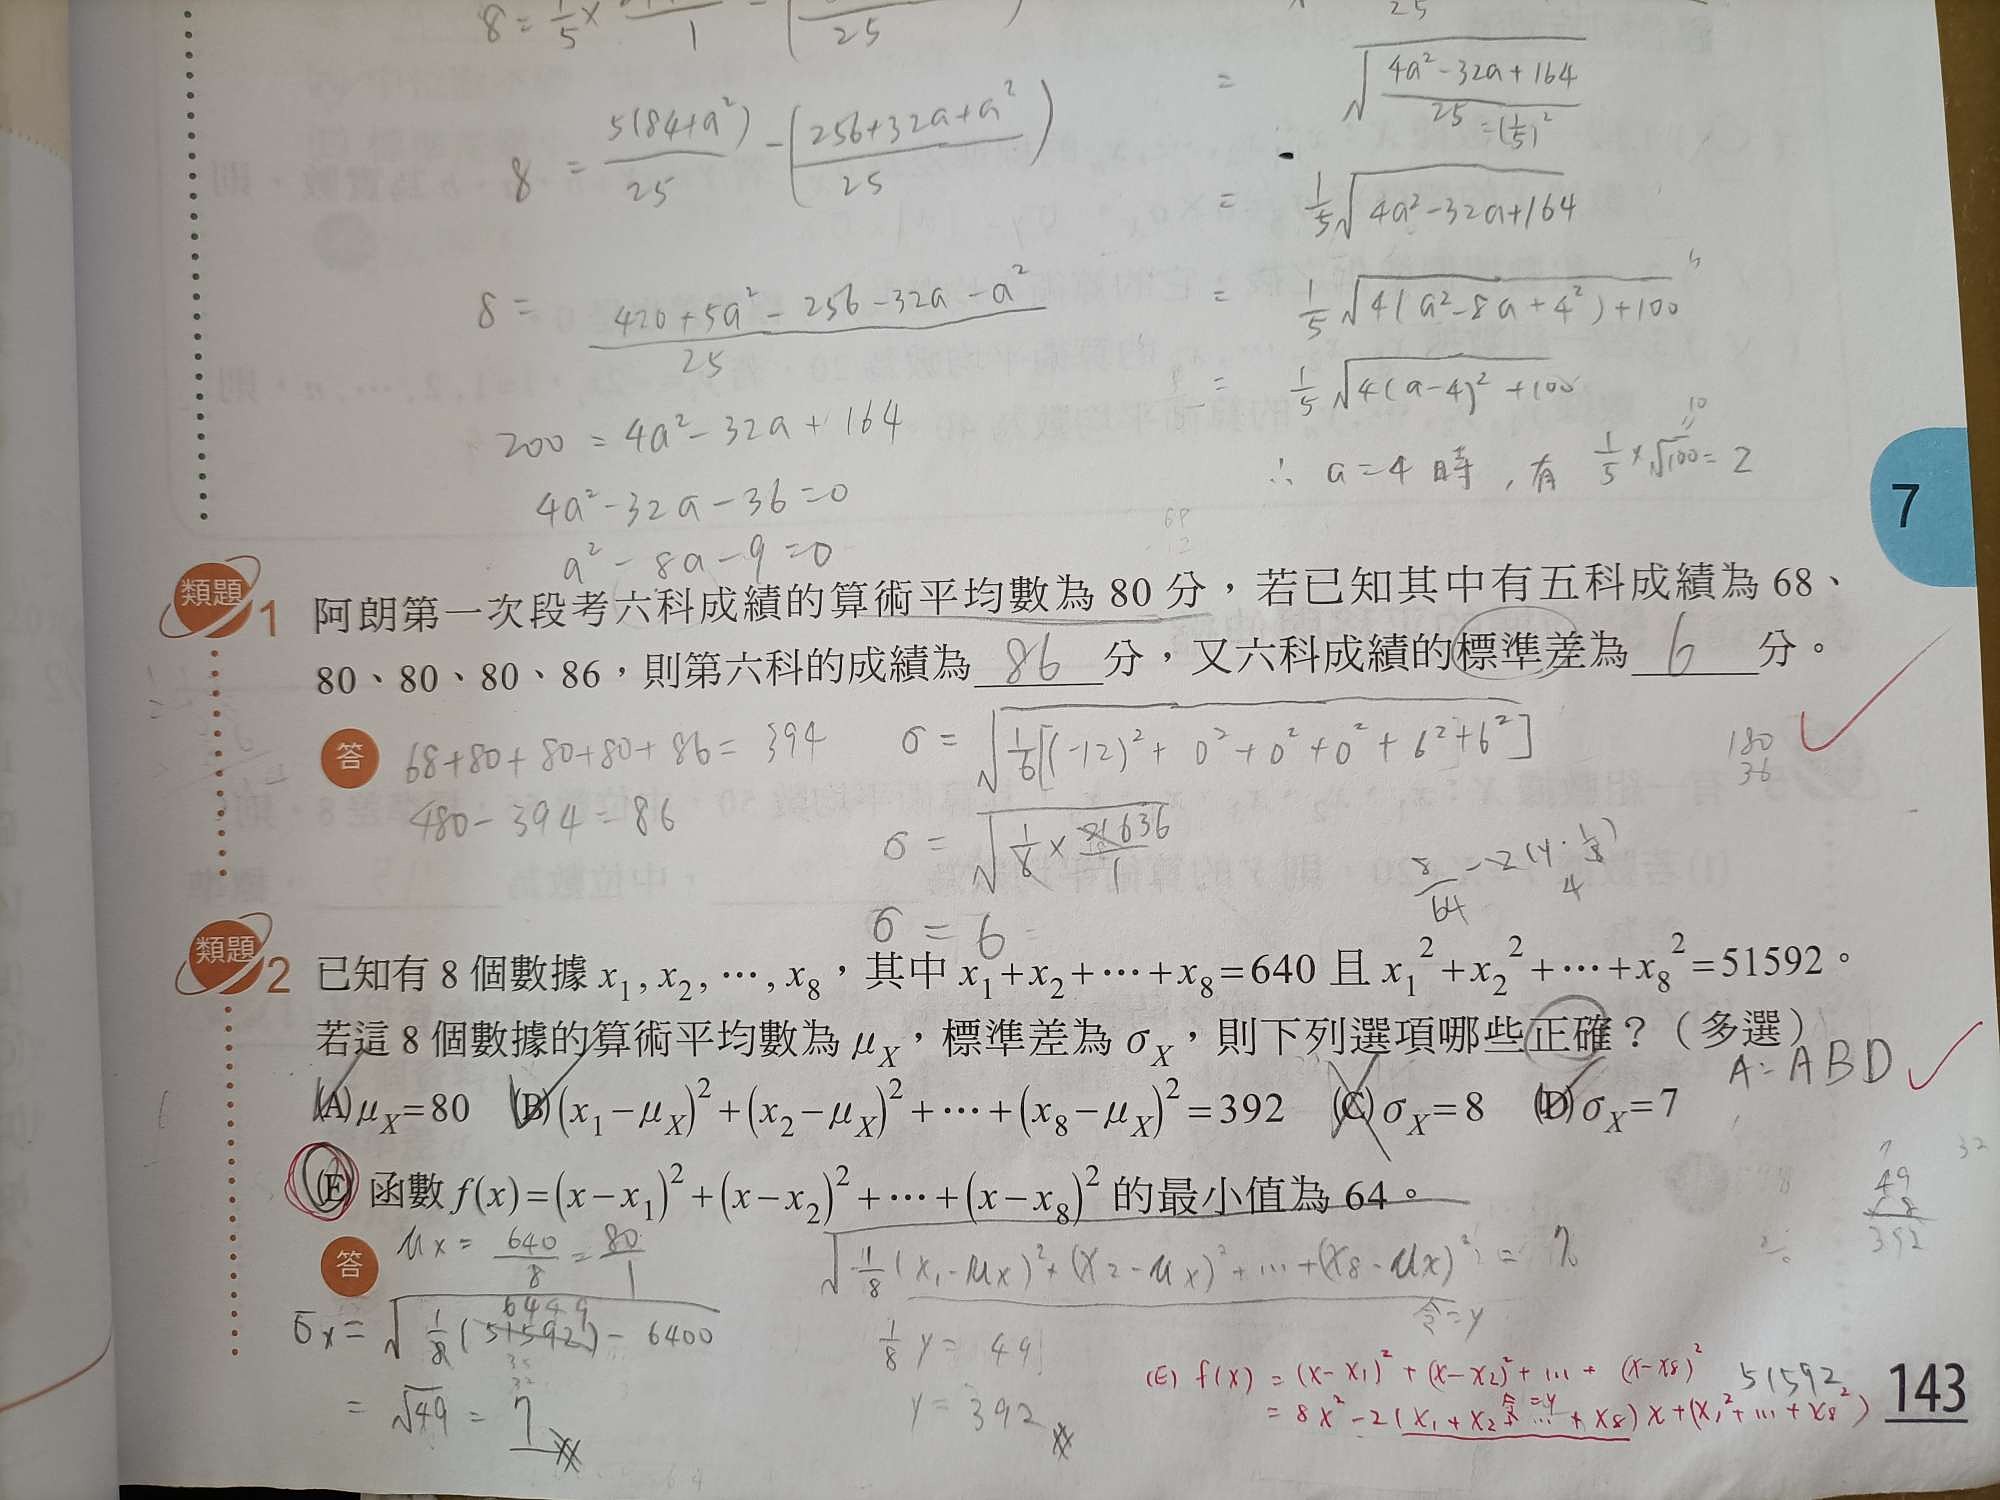 8 = 5(84+a²)/25 - (256+32a+a²/25)
8 = 420+5a²-256-32a-a²/25
200 = 4a²-32a+164
4a²-32a-36=0
a²-8a-9=0
= √4a²-32a+164/25 =(1/5)²
= 1/5√4a²-32a+164
= 1/5√4(a²-8a+4²)+100
= 1/5√4(a-4)²+100
∴ a=4時,有 1/5×√100=2
10
7
類題1 阿朗第一次段考六科成績的算術平均數為 80 分,若已知其中有五科成績為 68、
80、80、80、86,則第六科的成績為 86 分,又六科成績的標準差為 6 分。
答 68+80+80+80+86=394
480-394=86
σ = √1/6[(-12)²+0²+0²+0²+6²+6²]
σ = 6
180
36
類題2 已知有 8 個數據 x₁, x₂, ⋯, x₈,其中 x₁+x₂+⋯+x₈=640 且 x₁²+x₂²+⋯+x₈²=51592。
若這 8 個數據的算術平均數為 μX,標準差為 σX,則下列選項哪些正確?(多選)
A: ABD
(A) μX=80 (B) (x₁-μX)²+(x₂-μX)²+⋯+(x₈-μX)²=392 (C) σX=8 (D) σX=7
(E) 函數 f(x)=(x-x₁)²+(x-x₂)²+⋯+(x-x₈)² 的最小值為 64。
答 μx = 640/8 = 80/1
σx = √1/8(51592)-6400
6449
= √49 = 7
√1/8(x₁-μx)²+(x₂-μx)²+⋯+(x₈-μx)² = 7
令=y
1/8 y = 49
y = 392
49
8
392
(E) f(x) = (x-x₁)²+(x-x₂)²+⋯+(x-x₈)²
51592
= 8x²-2(x₁+x₂+⋯+x₈)x+(x₁²+⋯+x₈²)
令=y
143